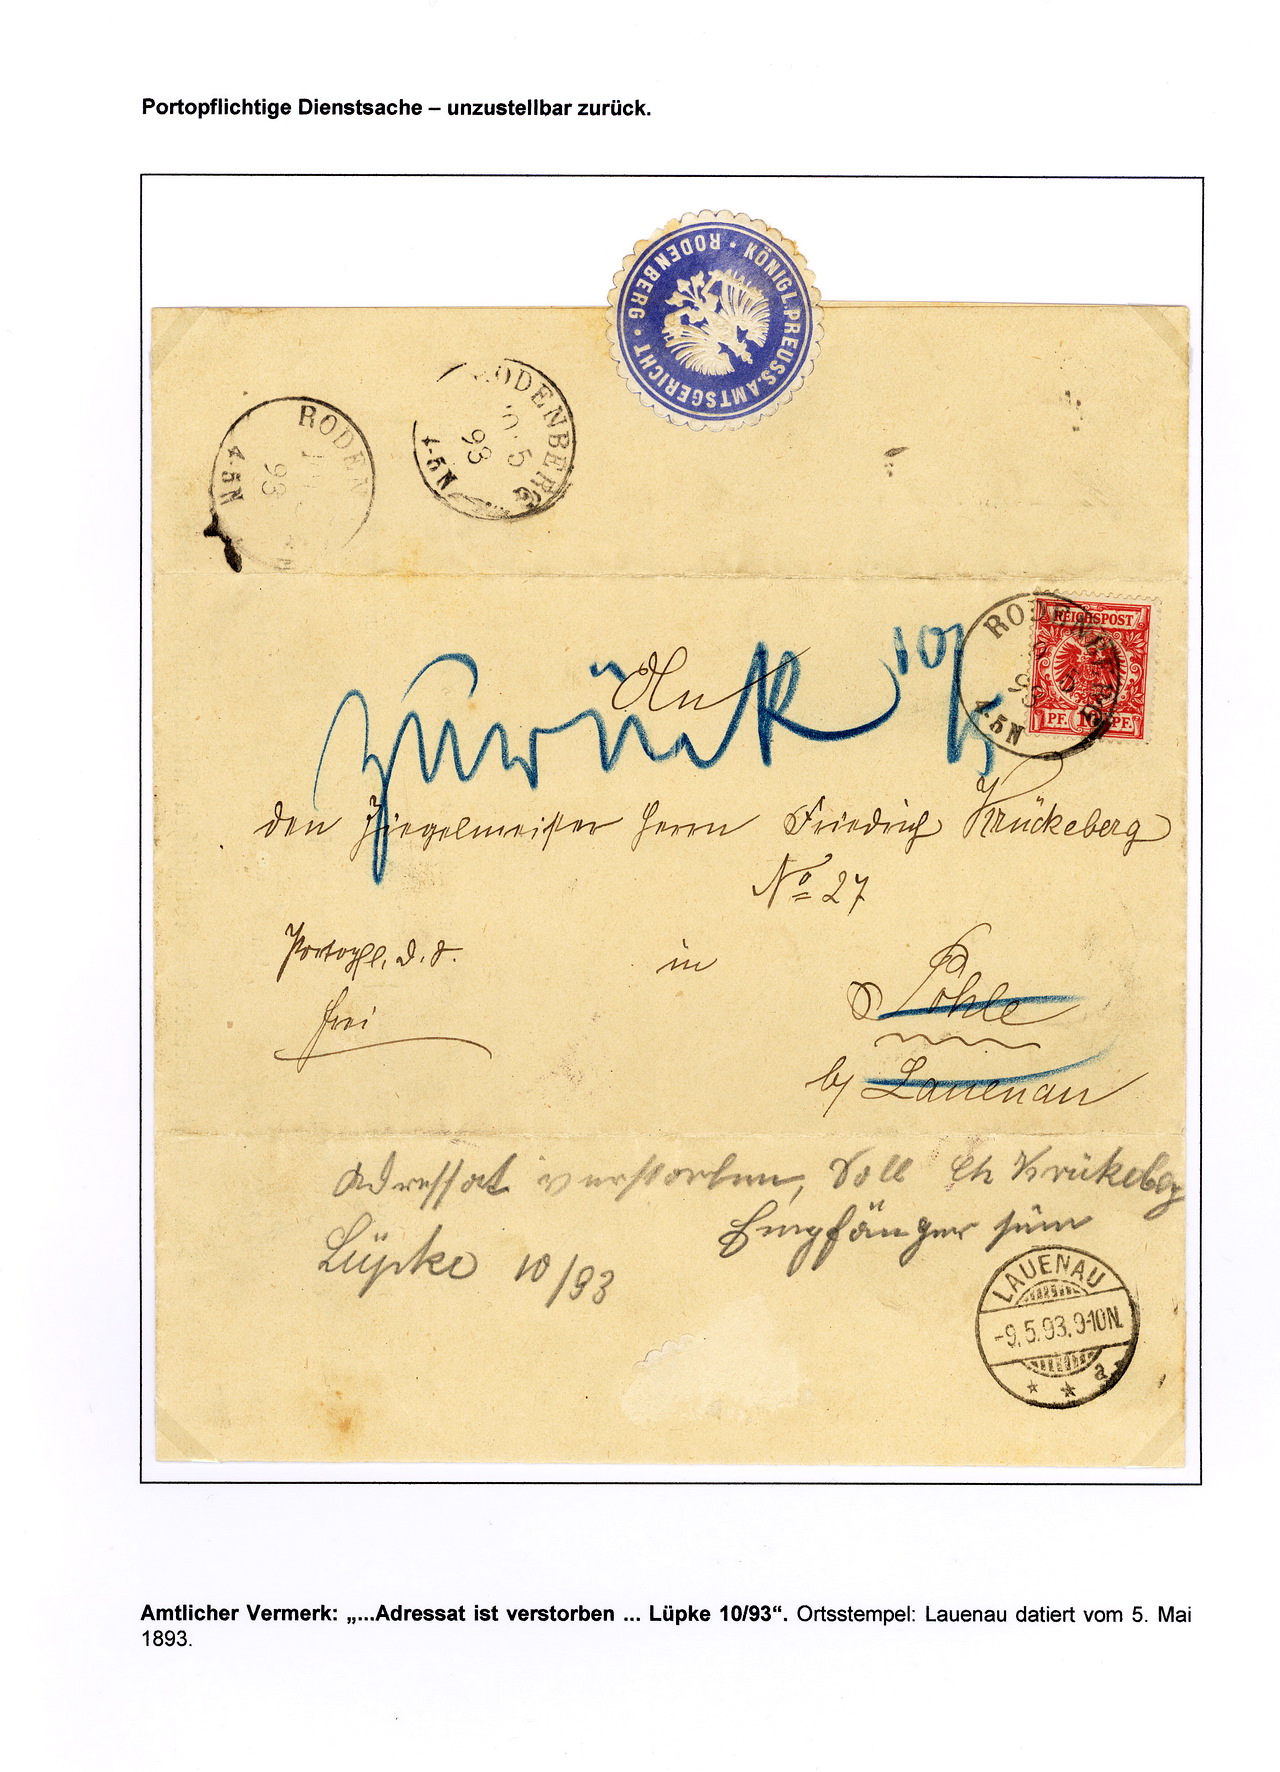 Portopflichtige Dienstsache – unzustellbar zurück.
KÖNIGL. PREUSS. AMTSGERICHT · RODENBERG ·
RODENBERG
5
93
4-5N
RODEN
93
4-5N
REICHSPOST
PF. 10 PF.
RODENBERG
5
93
4-5N
zurück 10/5
An
den Ziegelmeister Herrn Friedrich Krückeberg
No 27
Portopfl. d. S.
in
Pohle
frei
b/ Lauenau
Adressat verstorben, Soll Ch Krükeberg
Empfänger sein
Lüpke 10/93
LAUENAU
-9.5.93.9-10N.
* * a
Amtlicher Vermerk: „...Adressat ist verstorben ... Lüpke 10/93“. Ortsstempel: Lauenau datiert vom 5. Mai
1893.